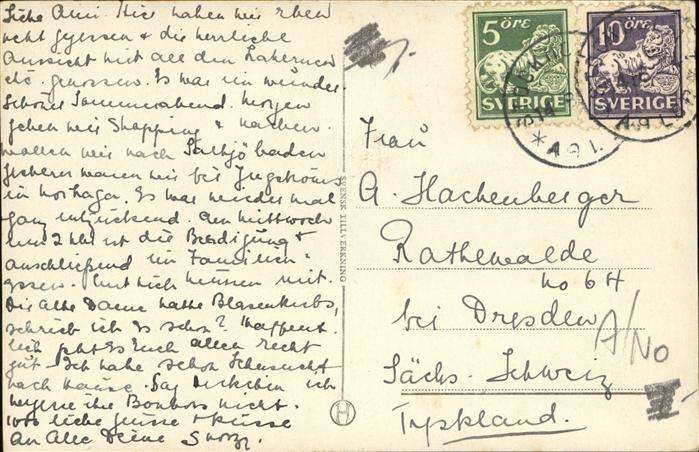 Liebe Omi. Hier haben wir eben
nett gegessen + die herrliche
Aussicht mit all den Laternen
etc. genossen. Es war ein wunder
schöner Sommerabend. Morgen
gehen wir Shopping + nachm.
wollen wir nach Saltsjöbaden
gestern waren wir bei
in Es war wieder mal
ganz entzückend. Am Mittwoch
um 2 Uhr ist die Beerdigung +
anschließend ein Familien-
essen. müssen mit.
Die alte Dame hatte Blasenkrebs,
schrieb ich es schon? Hoffent
lich geht es Euch allen recht
gut. Ich habe schon Sehnsucht
nach Hause. Sag ich
vergesse ihre Bonbons nicht.
1000 liebe Grüsse + Küsse
an Alle Deine
SVENSK TILLVERKNING
5 ÖRE
SVERIGE
10 ÖRE
SVERIGE
Frau
A. Hachenberger
Rathewalde
No 64
bei Dresden
Sächs. Schweiz
Tyskland.
A/No
H